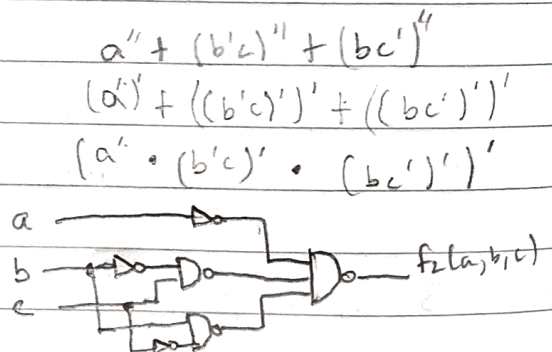 a'' + (b'c)'' + (bc')''
(a')' + ((b'c)')' + ((bc')')'
(a' · (b'c)' · (bc')')'
a
b
c
f₂(a,b,c)